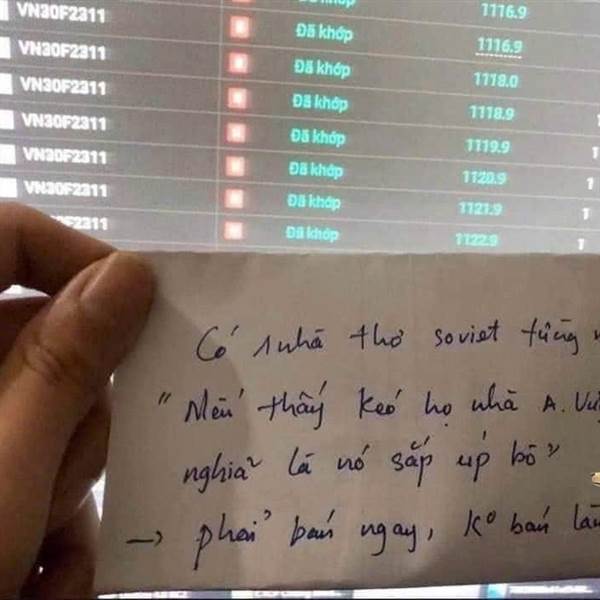 VN30F2311 1116.9
VN30F2311 Đã khớp 1116.9
VN30F2311 Đã khớp 1118.0
VN30F2311 Đã khớp 1118.9
VN30F2311 Đã khớp 1119.9
VN30F2311 Đã khớp 1120.9 1
F2311 Đã khớp 1121.9 1
Đã khớp 1122.9 1
Có 1 nhà thơ soviet từng
"Nếu thấy kéo họ nhà A.
nghĩa là nó sắp úp bô"
→ phải bán ngay, ko bán